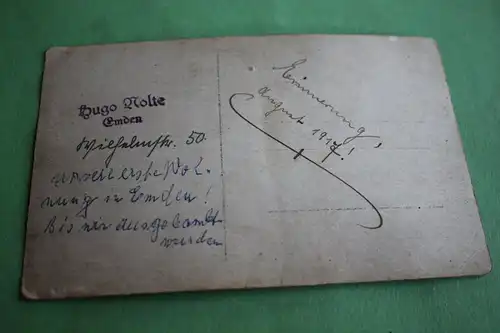 Hugo Nolte
Emden
Wilhelmstr. 50.
unsere erste Woh-
nung in Emden!
Bis wir ausgebombt
wurden
Erinnerung!
August 1917!